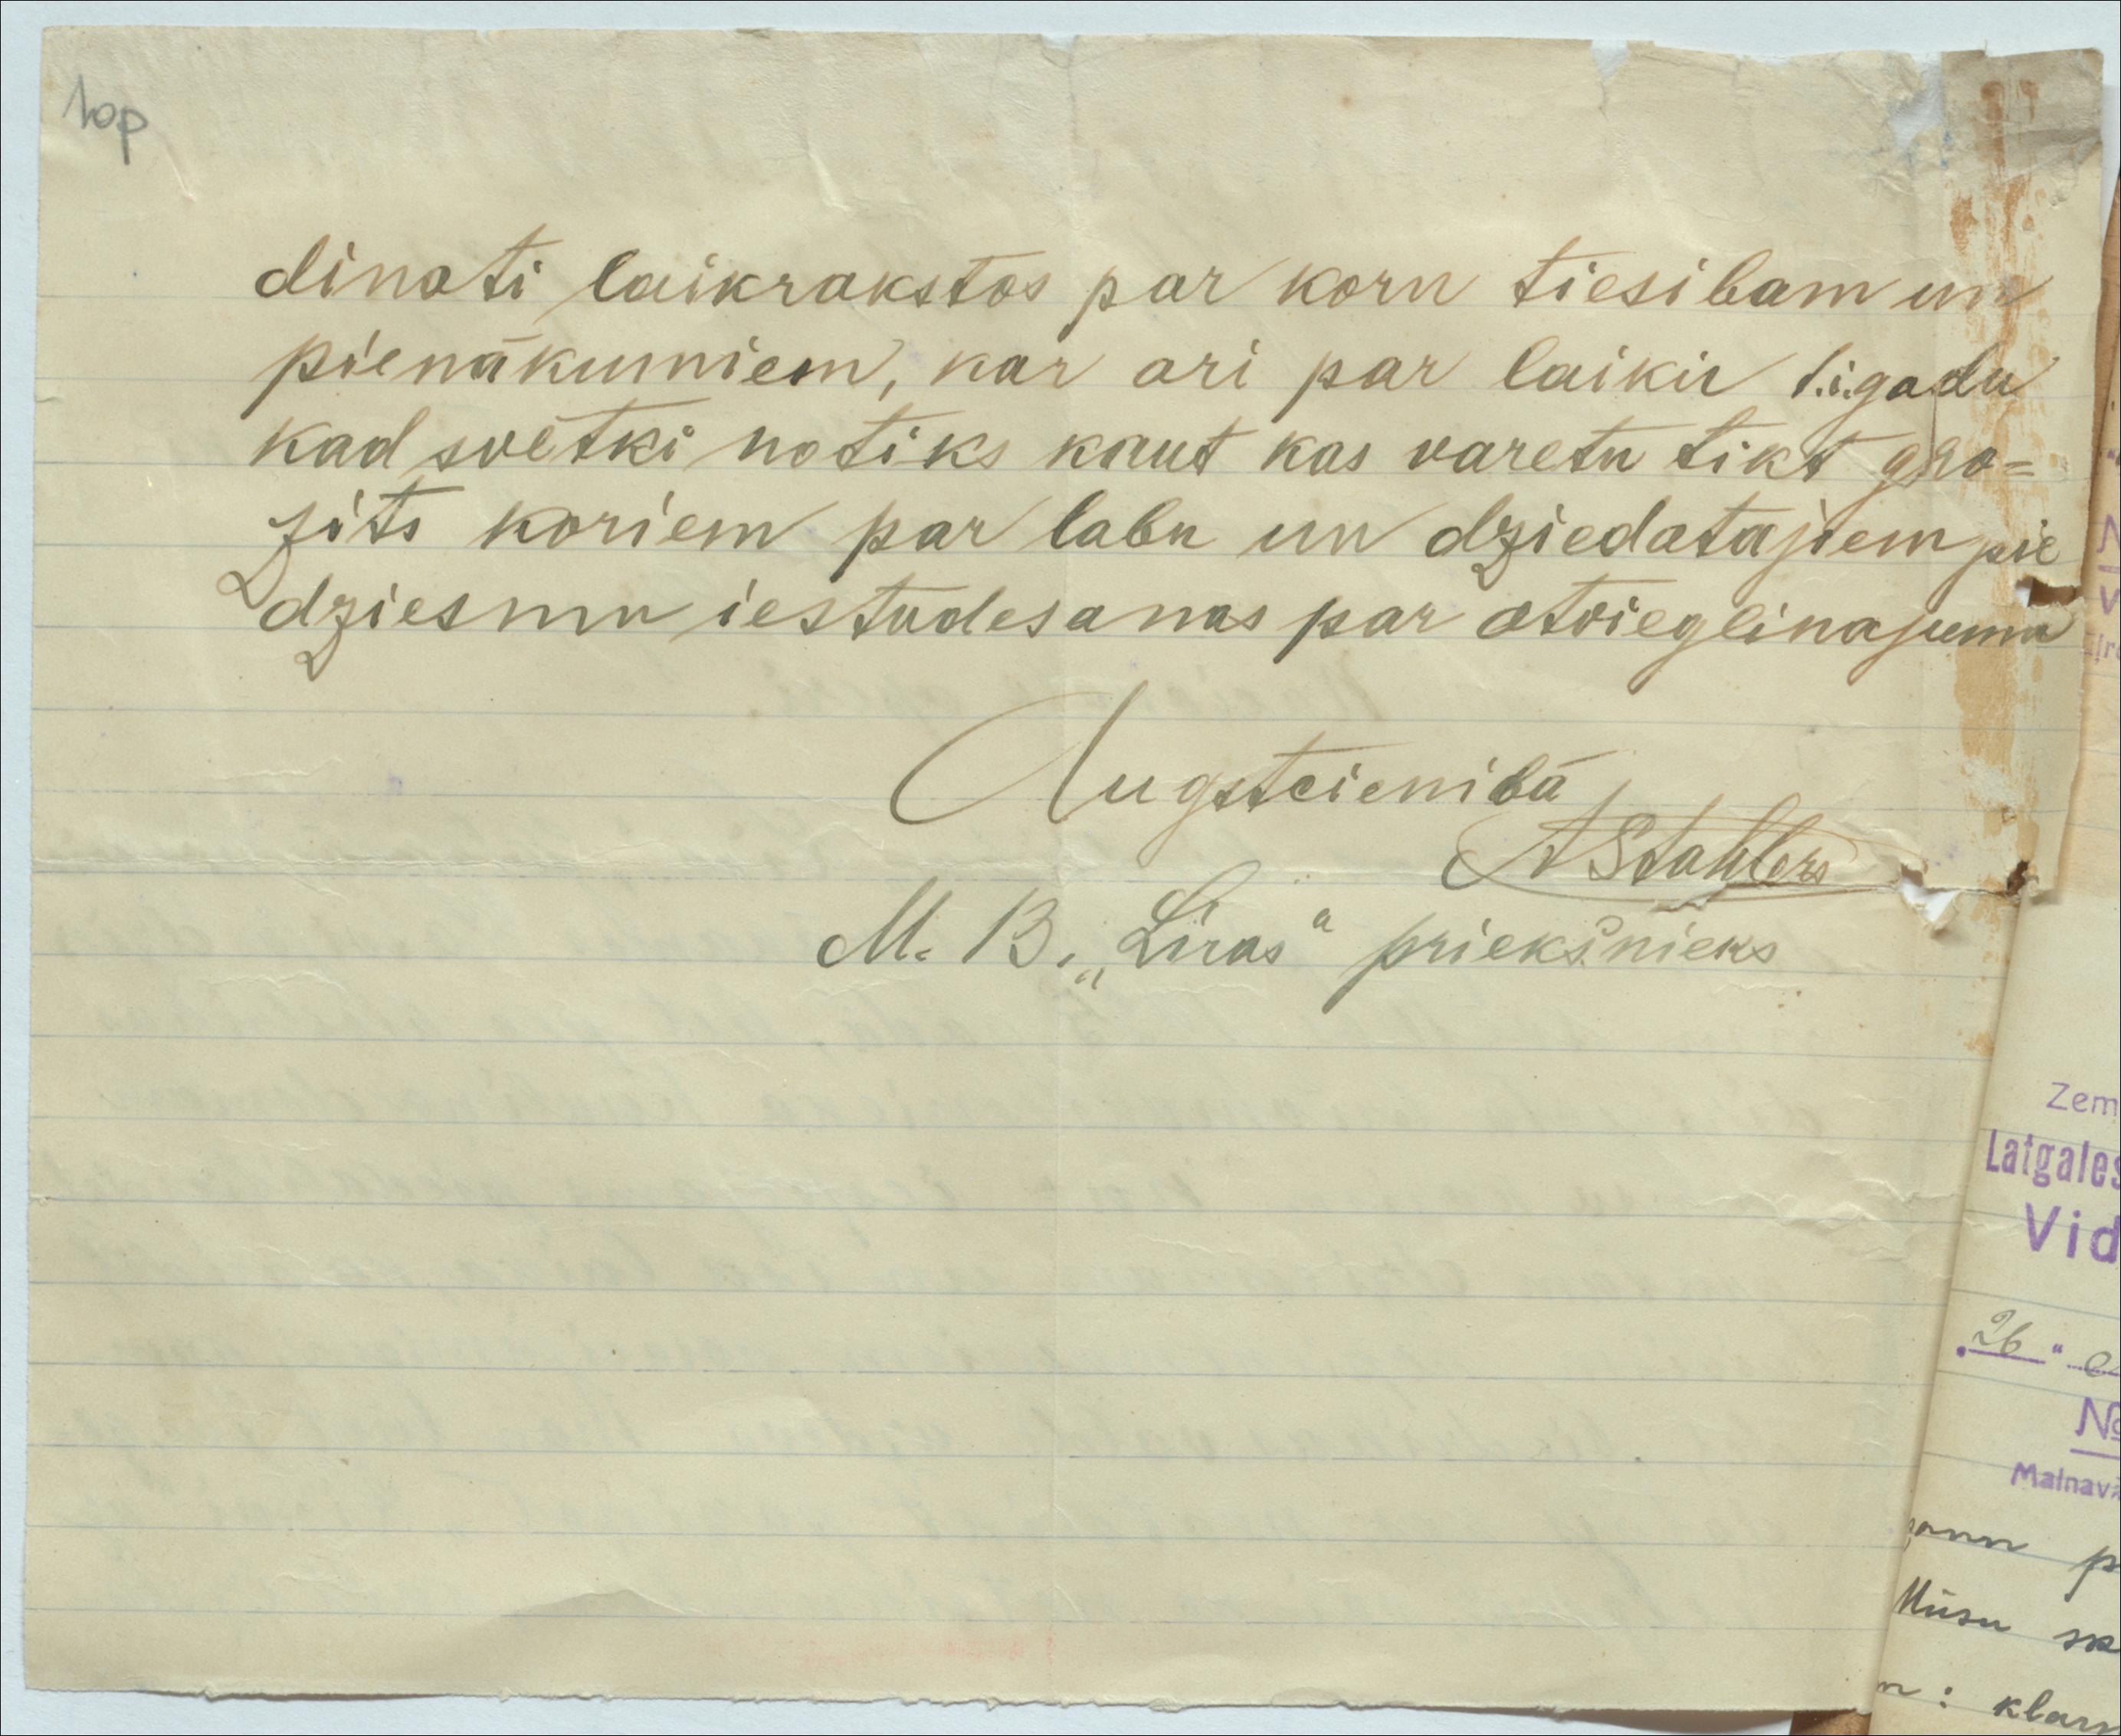 1op
dinati laikrakstos par koru tiesibam un
pienākumiem, kar ari par laiku š.i.gadu
kad svētki notiks kaut kas varetu tikt gro=
zits koriem par labu un dziedatajiem pie
dziesmu iestudesanas par atvieglinajumu
Augstcienibā
AStahlers
M. B. „Liras“ priekšnieks
Zem
Latgales
Vid
„26“
№
Malnav
Mūsu